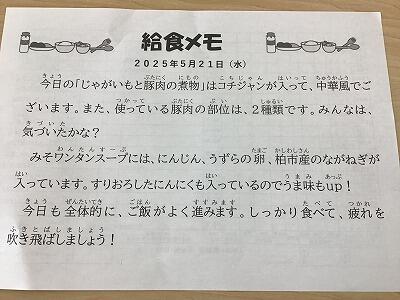 給食メモ
2025年5月21日(水)
今日の「じゃがいもと豚肉の煮物」はコチジャンが入って、中華風でご
ざいます。また、使っている豚肉の部位は、2種類です。みんなは、
気づいたかな?
みそワンタンスープには、にんじん、うずらの卵、柏市産のながねぎが
入っています。すりおろしたにんにくも入っているのでうま味もup!
今日も全体的に、ご飯がよく進みます。しっかり食べて、疲れを
吹き飛ばしましょう!